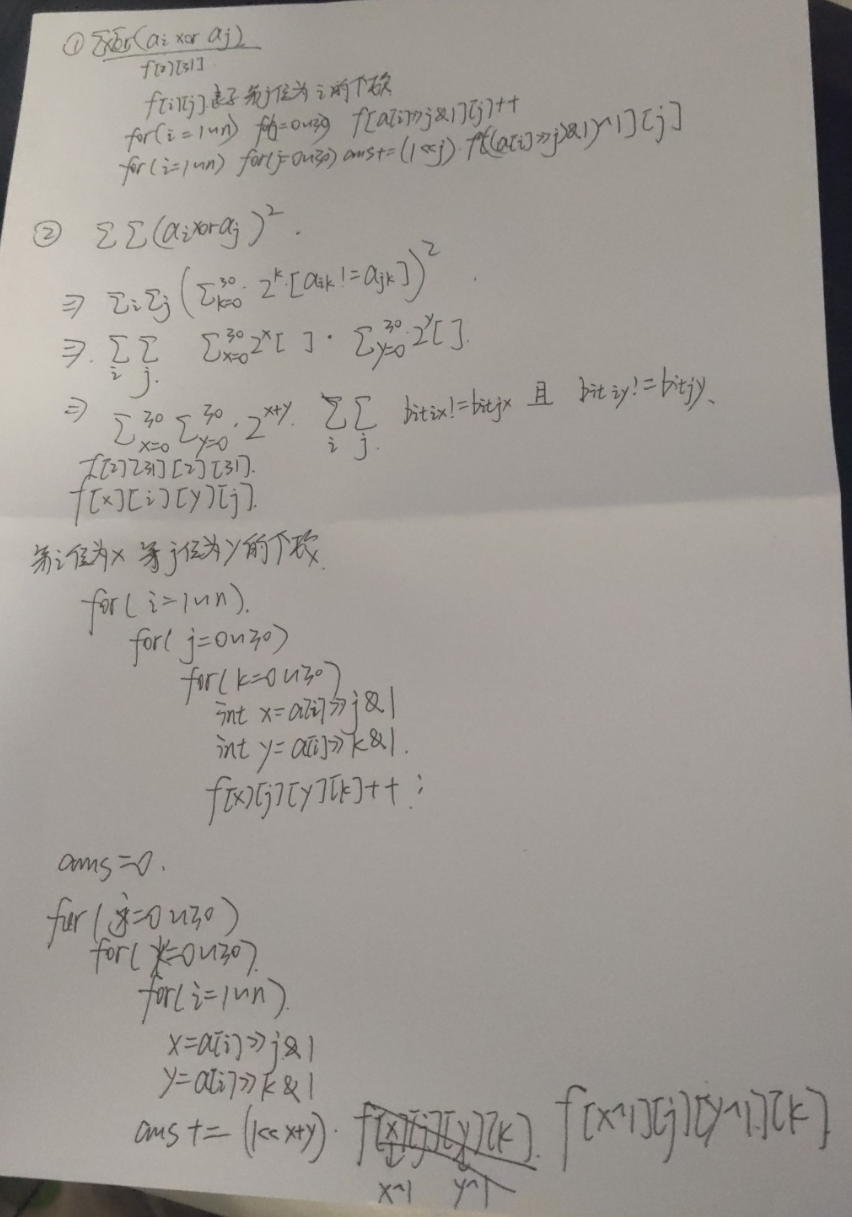 ① ΣΣ(ai xor aj)
f[2][31]
f[i][j] 表示第j位为i的个数
for(i=1~n) for(j=0~30) f[a[i]>>j&1][j]++
for(i=1~n) for(j=0~30) ans+=(1<<j)·f[((a[i]>>j)&1)^1][j]
② ΣΣ(ai xor aj)².
⇒ Σi Σj (Σ³⁰k=0 2^k·[aik != ajk])²
⇒. Σi Σj. Σ³⁰x=0 2^x[ ] · Σ³⁰y=0 2^y[ ].
⇒ Σ³⁰x=0 Σ³⁰y=0 · 2^x+y. Σi Σj. bit ix != bit jx 且 bit iy != bit jy、
f[2][31][2][31].
f[x][i][y][j].
第i位为x 第j位为y的个数.
for(i=1~n).
for(j=0~30)
for(k=0~30)
int x=a[i]>>j&1
int y=a[i]>>k&1.
f[x][j][y][k]++;
ans=0.
for(j=0~30)
for(k=0~30).
for(i=1~n).
x=a[i]>>j&1
y=a[i]>>k&1
ans+=(1<<x+y)· f[x][j][y][k]. f[x^1][j][y^1][k]
x^1 y^1